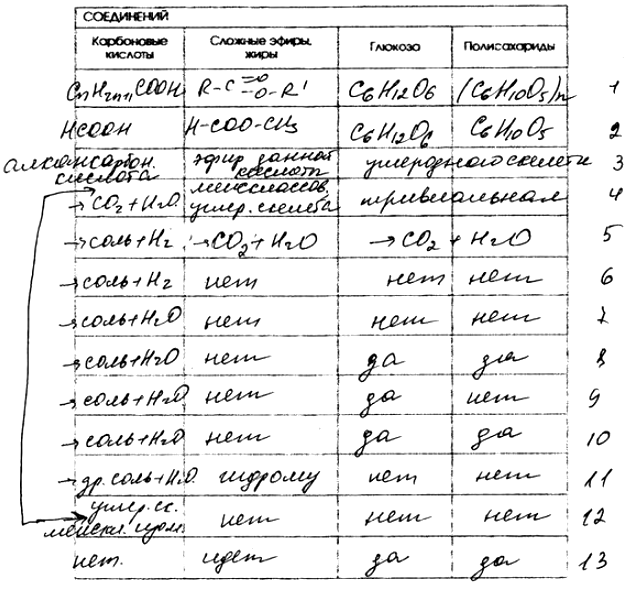 СОЕДИНЕНИЙ
Карбоновые кислоты Сложные эфиры, жиры Глюкоза Полисахариды
CnH2n+1COOH R-C=O-O-R' C6H12O6 (C6H10O5)n 1
HCOOH H-COO-CH3 C6H12O6 C6H10O5 2
алканкарбон. кислота эфир данной кислоты углеродного скелета 3
→CO2+H2O межклассов. углер. скелета тривиальная 4
→соль+H2 →CO2+H2O →CO2+H2O 5
→соль+H2 нет нет нет 6
→соль+H2O нет нет нет 7
→соль+H2O нет да да 8
→соль+H2O нет да нет 9
→соль+H2O нет да да 10
→др. соль+H2O гидролиз нет нет 11
углер. ск. межкл. изом. нет нет нет 12
нет. идет да да 13